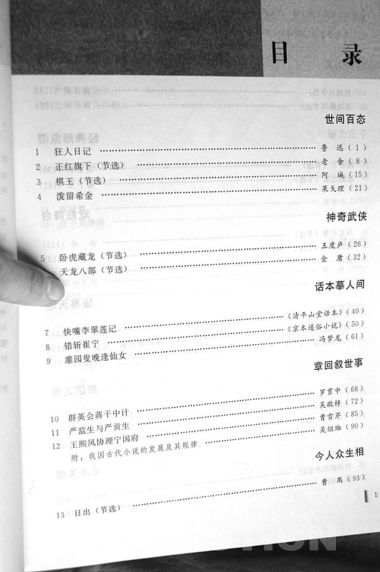 目 录
世间百态
1 狂人日记 鲁 迅(1)
2 正红旗下(节选) 老 舍(8)
3 棋王(节选) 阿 城(15)
4 泼留希金 果戈理(21)
神奇武侠
5 卧虎藏龙(节选) 王度庐(26)
天龙八部(节选) 金 庸(32)
话本摹人间
7 快嘴李翠莲记 《清平山堂话本》(40)
8 错斩崔宁 《京本通俗小说》(50)
9 灌园叟晚逢仙女 冯梦龙(61)
章回叙世事
10 群英会蒋干中计 罗贯中(68)
11 严监生与严贡生 吴敬梓(72)
12 王熙凤协理宁国府 曹雪芹(85)
附:我国古代小说的发展及其规律 吴组缃(90)
今人众生相
13 日出(节选) 曹 禺(93)
1